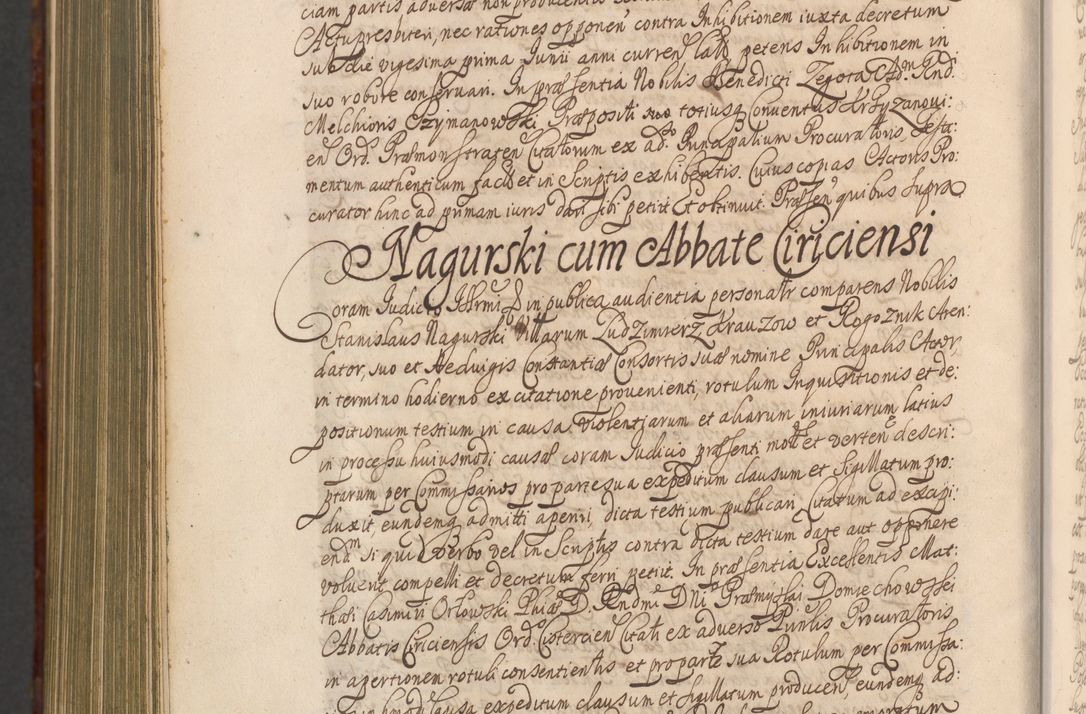 ciam partis adversæ non producentis
Actu presbiteri, nec rationes opponen contra Inhibitionem iuxta decretum
sub die vigesima prima Junii anni curren lato petens Inhibitionem in
suo robore conservari. In præsentia Nobilis Benedicti Zegota Adm. Rnd.
Melchioris Szymanowski Præpositi suo totiusq Conventus Krzyzanovi:
en Ord. Præmonstraten Citatorum ex ad. Principalium Procuratoris, Testa:
mentum authenticum facto et in Scriptis exhibentis. Cuius copias Actoris Pro:
curator hinc ad primam iuris dari sibi petiit et obtinuit. Præsen quibus supra
Nagurski cum Abbate Ciriciensi
Coram Judicio Illrmi D in publica audientia personalr comparens Nobilis
Stanislaus Nagurski Villarum Ludzimierz Krauzow et Rogoznik Aren:
dator, suo et Hedvigis Constantiæ Consortis suæ nomine Principalis Actor,
in termino hodierno ex citatione provenienti, rotulum Inquisitionis et de:
positionum testium in causa Violentiarum et aliarum iniuriarum latius
in processu huiusmodi causæ coram Judicio præsenti mot et verten descri:
ptarum per Commissarios pro parte sua expeditum clausum et Sigillatum pro:
duxit, eundemq admitti aperiri, dicta testium publicari Citatum ad excipi:
endm si quid Verbo vel in Scriptis contra dicta testium dare aut opponere
voluerit compelli et decretum ferri petiit. In præsentia Excellentis Mat:
thæi Casimiri Orlowski Phiæ D. Rndmi Dni Præmyslai Domiechowski
Abbatis Ciriciensis Ord. Cistercien Citati ex adverso Pinlis Procuratoris
in apertionem rotuli consentientis et pro parte sua Rotulum per Commissa:
expeditum clausum et Sigillatum producen, eundemq ad: